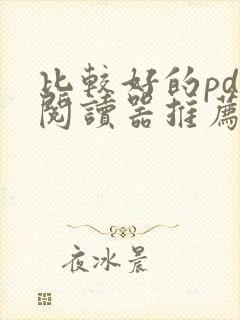 比較好的pd
閱讀器推薦
夜冰晨